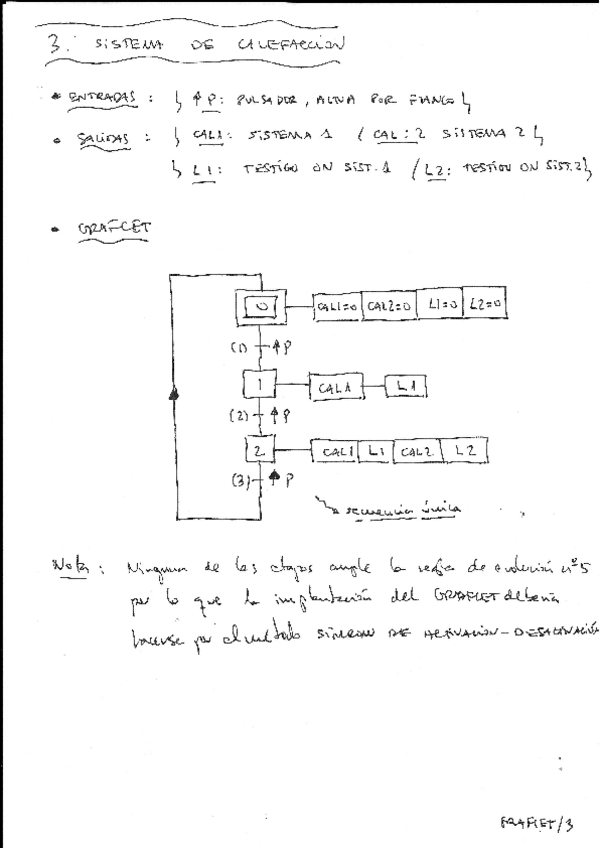 3. SISTEMA DE CALEFACCION
• ENTRADAS : { ↑P: PULSADOR, ACTIVA POR FLANCO }
• SALIDAS : { CAL1: SISTEMA 1 / CAL:2 SISTEMA 2 }
{ L1: TESTIGO ON SIST.1 / L2: TESTIGO ON SIST.2 }
• GRAFCET
0 CAL1=0 CAL2=0 L1=0 L2=0
(1) ↑P
1 CAL1 L1
(2) ↑P
2 CAL1 L1 CAL2 L2
(3) ↑P
secuencia única
Nota: Ninguna de las etapas cumple la regla de evolución nº5
por lo que la implantación del GRAFCET debería
hacerse por el método DE ACTIVACION-DESACTIVACIÓN
GRAFCET/3